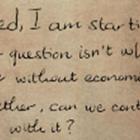 ed, I am start
question isn't wh
without econom
ther, can we cont
with it?